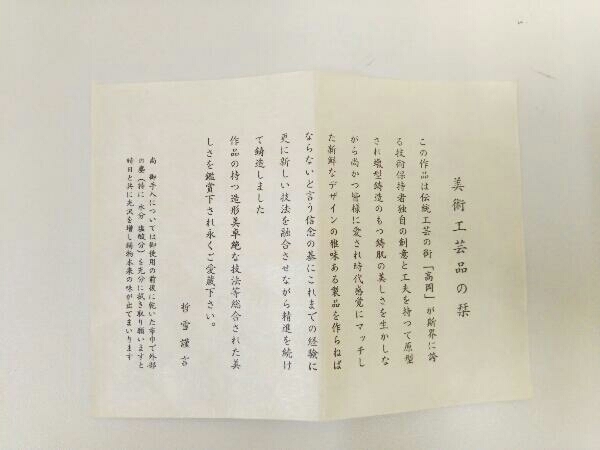 美術工芸品の栞
この作品は伝統工芸の街「高岡」が斯界に誇
る技術保持者独自の創意と工夫を持つて原型
され塑型鋳造のもつ鋳肌の美しさを生かしな
がら尚かつ皆様に愛され時代感覚にマッチし
た新鮮なデザインの雅味ある製品を作らねば
ならないと言う信念の基にこれまでの経験に
更に新しい技法を融合させながら精進を続け
て鋳造しました
作品の持つ造形美卓絶な技法等総合された美
しさを鑑賞下され永くご愛蔵下さい。
哲雪謹言
尚 御手入については御使用の前後に乾いた布巾で外部
の塵(特に 水分 塩酸分)を充分に拭き取り願いますと
時日と共に光沢を増し鋳物本来の味が出てまいります